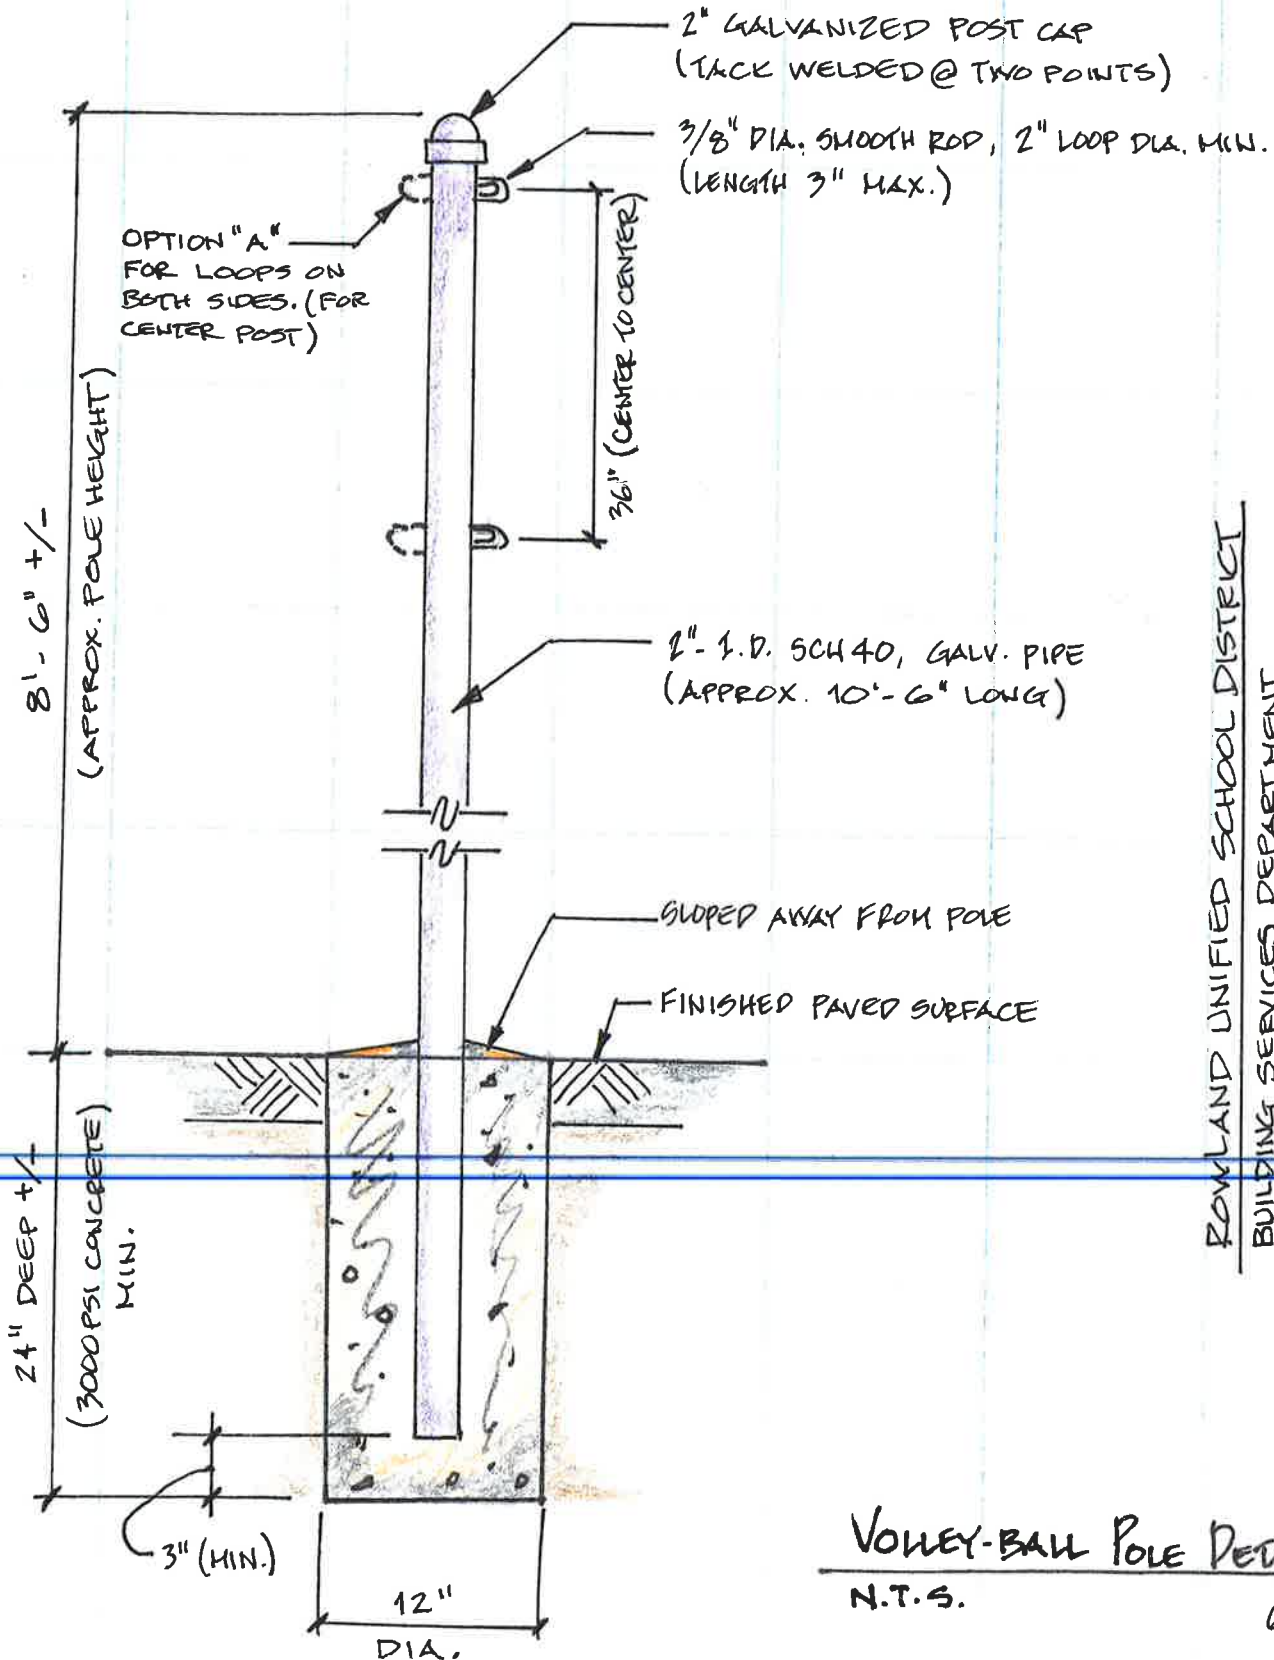 2" GALVANIZED POST CAP
(TACK WELDED @ TWO POINTS)
3/8" DIA. SMOOTH ROD, 2" LOOP DIA. MIN.
(LENGTH 3" MAX.)
OPTION "A"
FOR LOOPS ON
BOTH SIDES. (FOR
CENTER POST)
36" (CENTER TO CENTER)
8'-6" +/-
(APPROX. POLE HEIGHT)
2"- I.D. SCH 40, GALV. PIPE
(APPROX. 10'-6" LONG)
SLOPED AWAY FROM POLE
FINISHED PAVED SURFACE
24" DEEP +/-
(3000 PSI CONCRETE)
MIN.
3" (MIN.)
12"
DIA.
ROWLAND UNIFIED SCHOOL DISTRICT
BUILDING SERVICES DEPARTMENT
VOLLEY-BALL POLE
N.T.S.